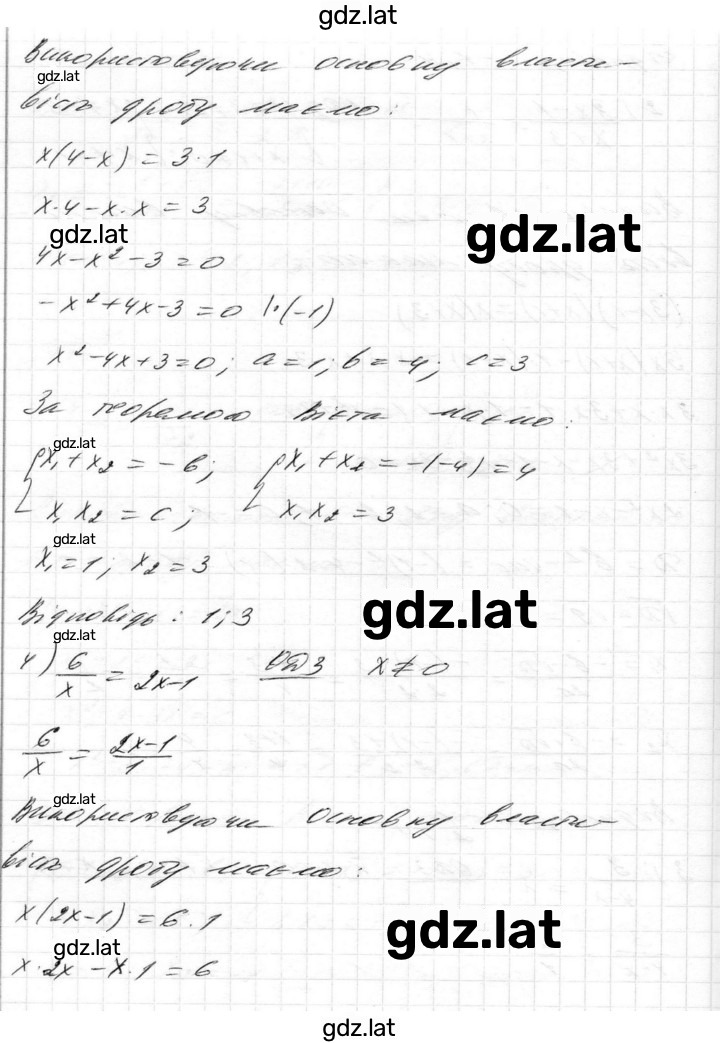 gdz.lat
Використовуючи основну власти-
gdz.lat
вість дробу маємо:
x(4-x) = 3·1
x·4-x·x = 3
gdz.lat
gdz.lat
4x-x²-3=0
-x²+4x-3=0 |·(-1)
x²-4x+3=0; a=1; b=-4; c=3
За теоремою Вієта маємо:
gdz.lat
{x₁+x₂=-b; {x₁+x₂=-(-4)=4
x₁x₂=c; x₁x₂=3
gdz.lat
x₁=1; x₂=3
gdz.lat
Відповідь: 1; 3
gdz.lat
4) 6/x = 2x-1 ОДЗ x≠0
6/x = (2x-1)/1
gdz.lat
Використовуючи основну власти-
вість дробу маємо:
x(2x-1)=6·1
gdz.lat
gdz.lat
x·2x-x·1=6
gdz.lat